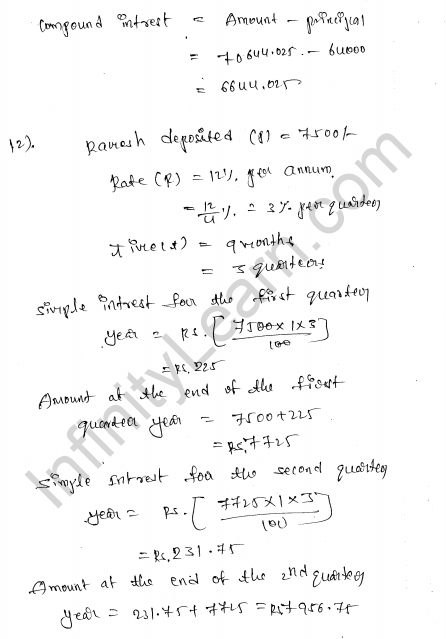 Compound intrest = Amount - principal
= 70644.025 - 64000
= 6644.025
12). Ramesh deposited (P) = 7500/-
Rate (R) = 12% per annum.
= 12/4 % = 3% per quarter
Time(t) = 9 months
= 3 quarters
Simple intrest for the first quarter
year = Rs. [7500 x 1 x 3 / 100]
= Rs. 225
Amount at the end of the first
quarter year = 7500 + 225
= Rs. 7725
Simple intrest for the second quarter
year = Rs. [7725 x 1 x 3 / 100]
= Rs. 231.75
Amount at the end of the 2nd quarter
year = 231.75 + 7725 = Rs 7956.75
InfinityLearn.com